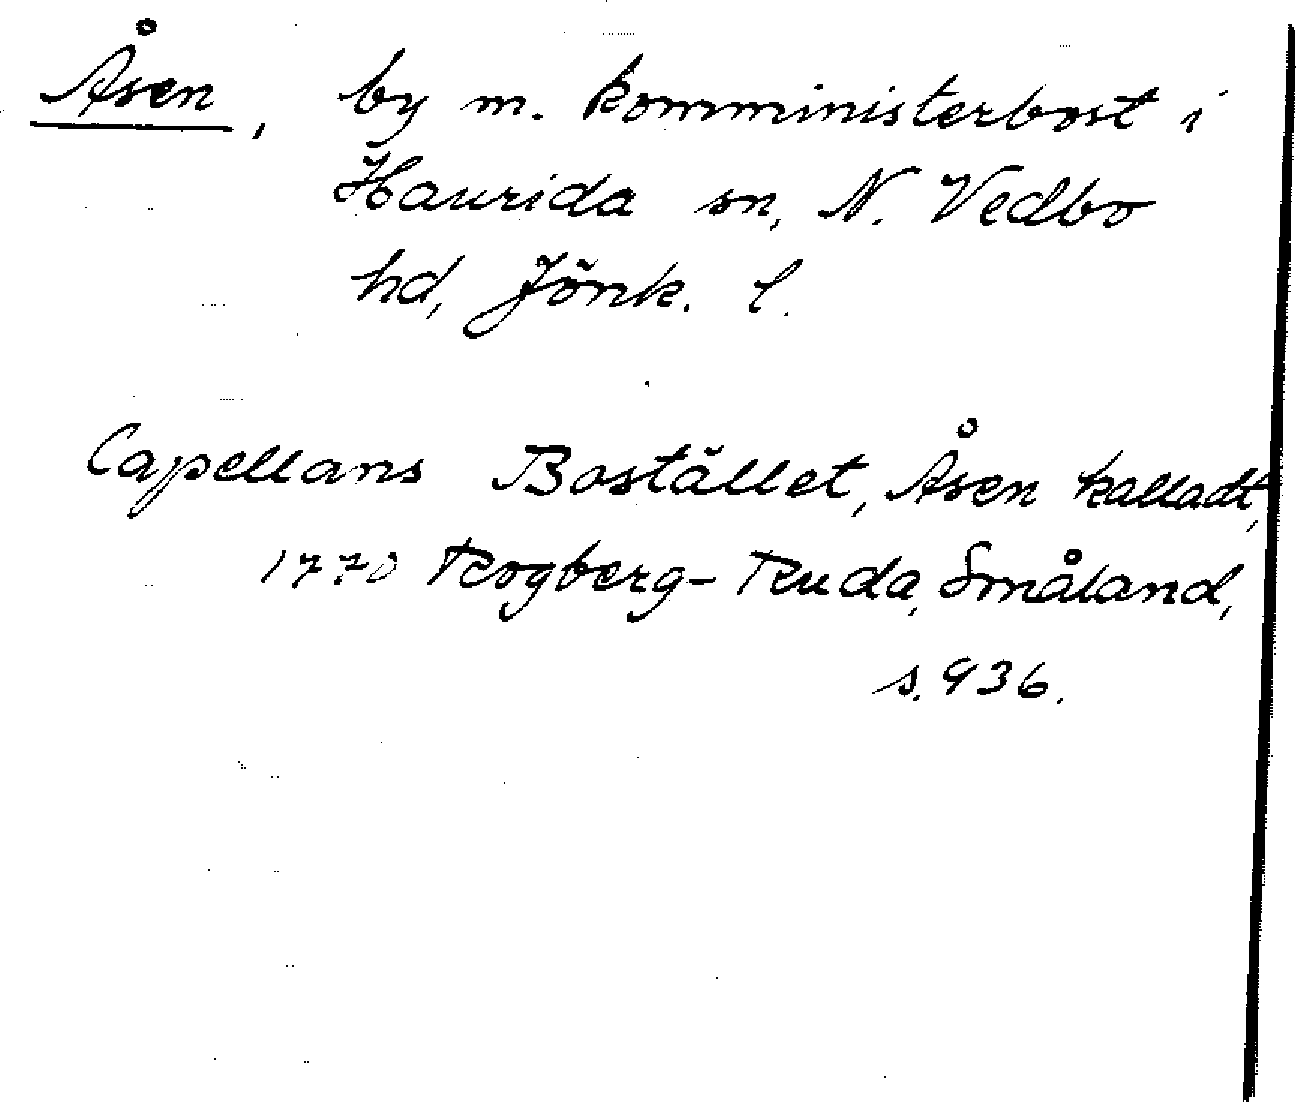 Åsen, by m. komministerbost i
Haurida sn, N. Vedbo
hd, Jönk. l.
Capellans Bostället, Åsen kalladt,
1770 Rogberg-Ruda, Småland,
s. 936.